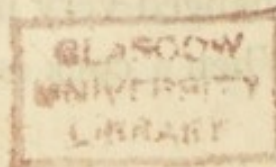 GLASGOW
UNIVERSITY
LIBRARY